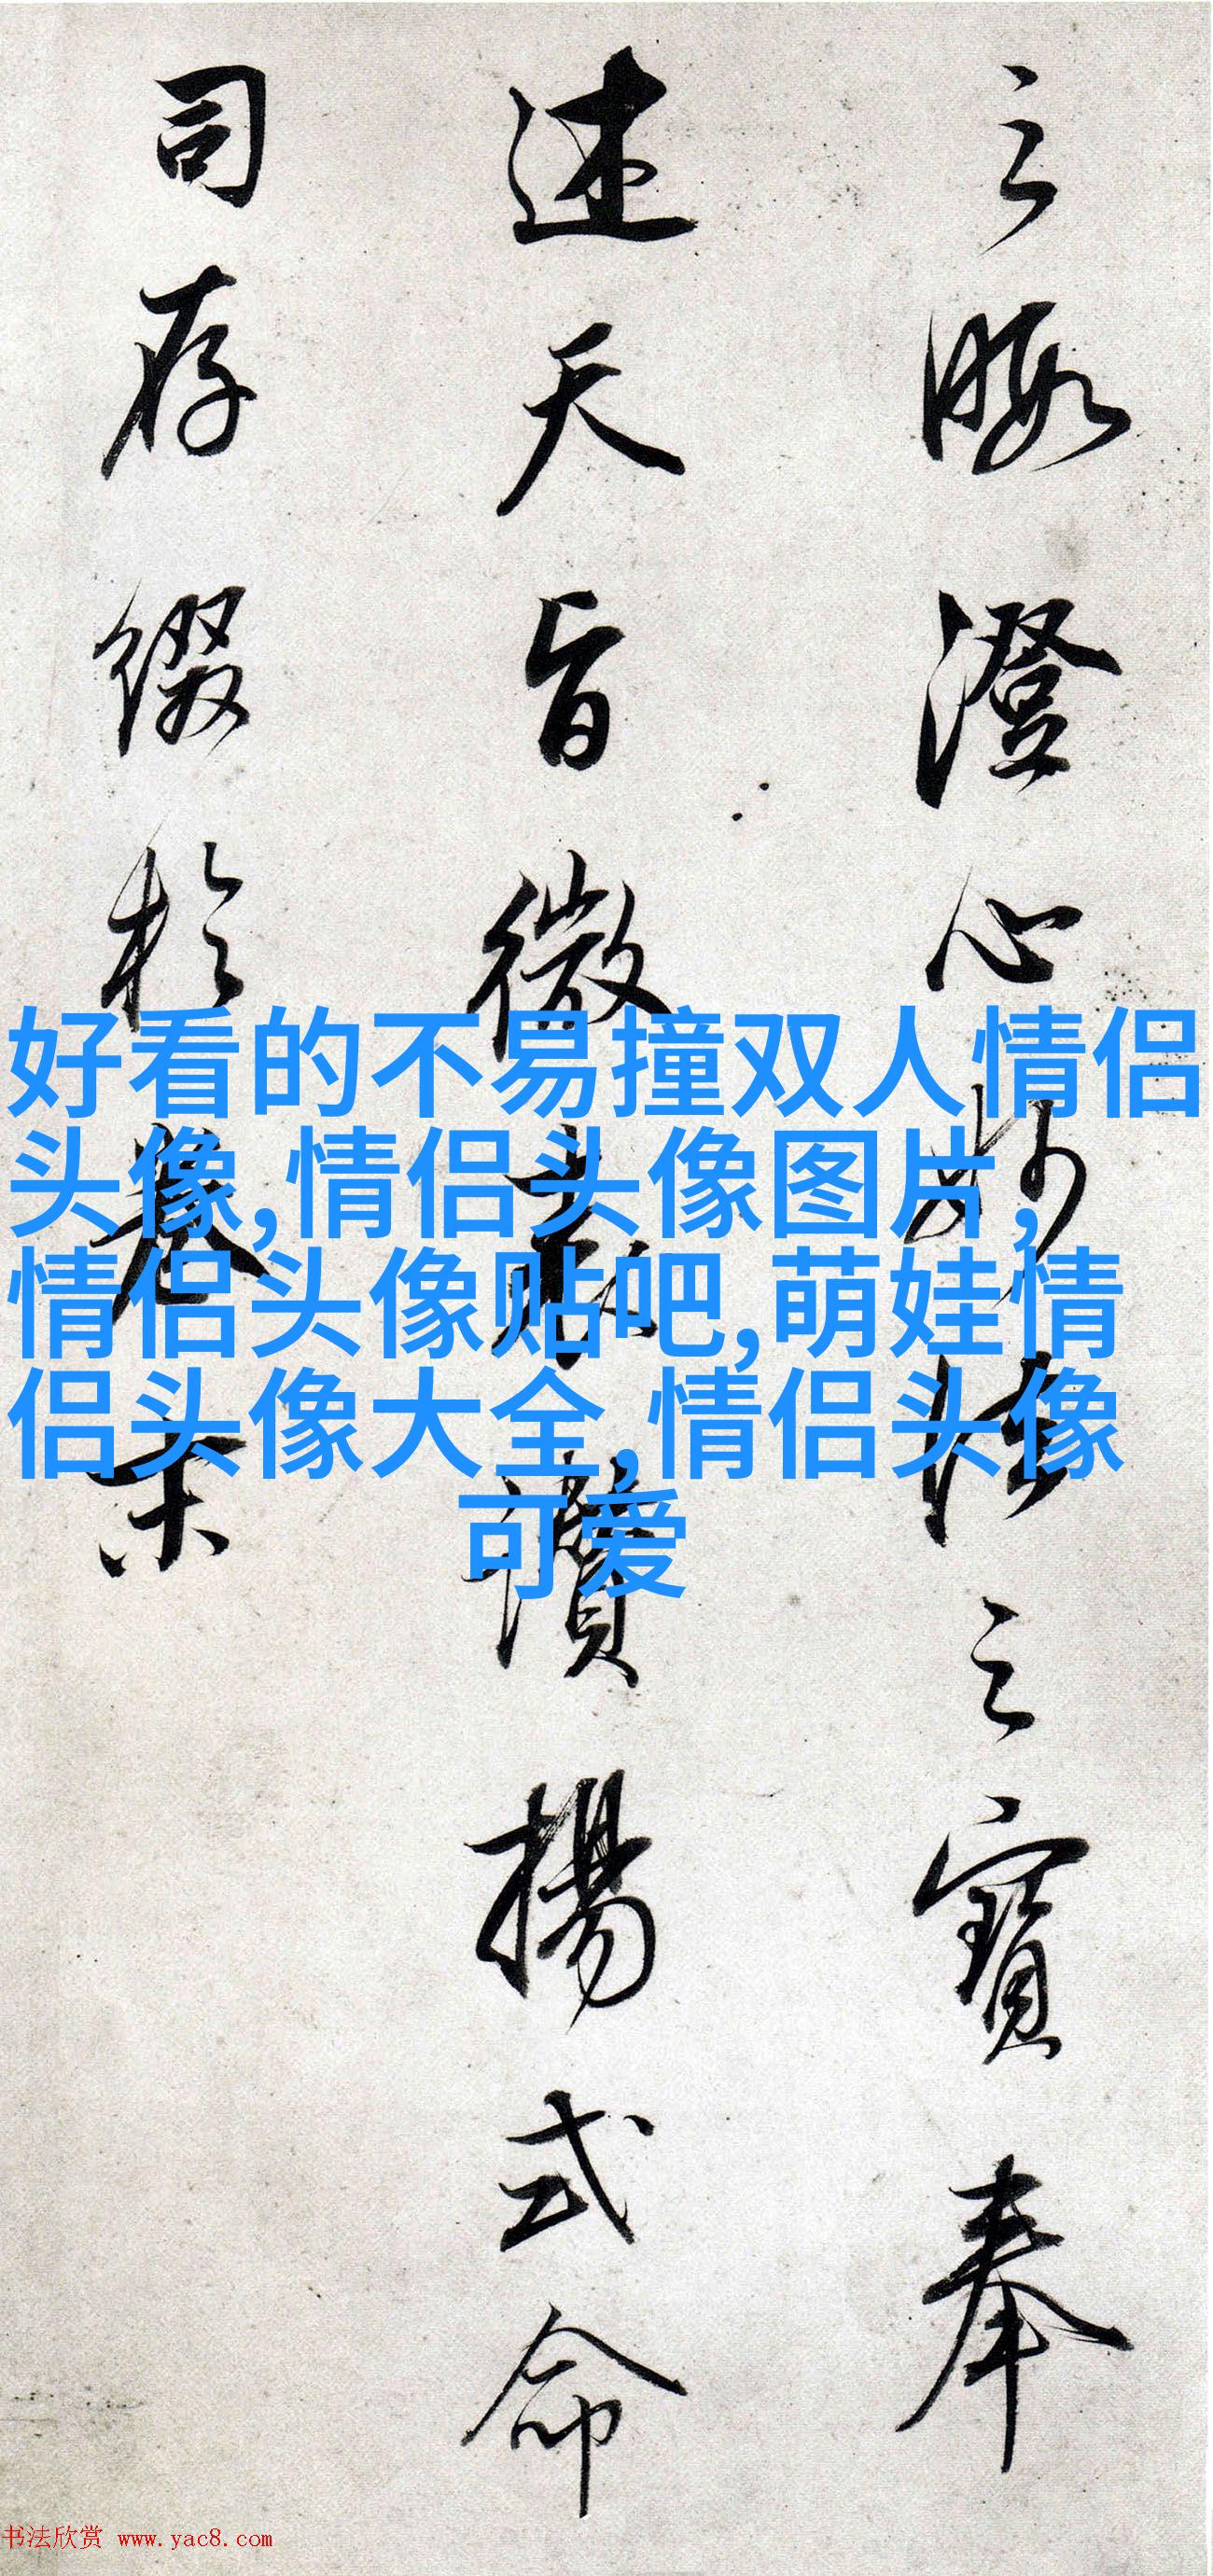 之暇澄心妙法之寳奉
述天旨微表讚揚式命
司存綴於卷末
好看的不易撞双人情侣
头像,情侣头像图片,
情侣头像贴吧,萌娃情
侣头像大全,情侣头像
可爱
书法欣赏 www.yac8.com